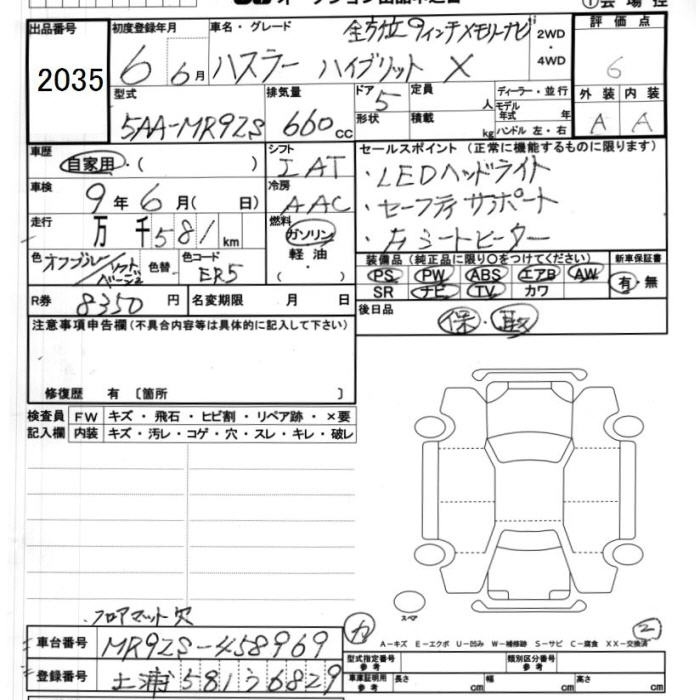 ①会場控
出品番号 2035
初度登録年月 6 6月
車名・グレード 全方位9インチメモリーナビ
ハスラー ハイブリット X
2WD・4WD
評価点 6
型式 5AA-MR92S
排気量 660cc
ドア 5
形状
定員 人
積載 kg
ディーラー・並行
モデル年式 年
ハンドル 左・右
外装 A
内装 A
車歴 自家用・( )
シフト IAT
セールスポイント(正常に機能するものに限ります)
・LEDヘッドライト
・セーフティサポート
シートヒーター
車検 9年6月( 日)
冷房 AAC
走行 万千581km
燃料 ガソリン・軽油・( )
色 オフブルー/ソフトベージュ
色替
色コード ER5
装備品(純正品に限り○をつけてください)
PS PW ABS エアB AW
SR ナビ TV カワ
新車保証書 有・無
R券 8350円
名変期限 月 日
後日品 保・取
注意事項申告欄(不具合内容等は具体的に記入して下さい)
修復歴 有〔箇所 〕
検査員記入欄
FW キズ・飛石・ヒビ割・リペア跡・×要
内装 キズ・汚レ・コゲ・穴・スレ・キレ・破レ
スペア
フロアマット欠
A-キズ E-エクボ U-凹み W-補修跡 S-サビ C-腐食 XX-交換済
②
車台番号 MR92S-458969
登録番号 土浦581 7 6829
型式指定番号 参考
類別区分番号 参考
車庫証明用 参考
長さ cm
幅 cm
高さ cm